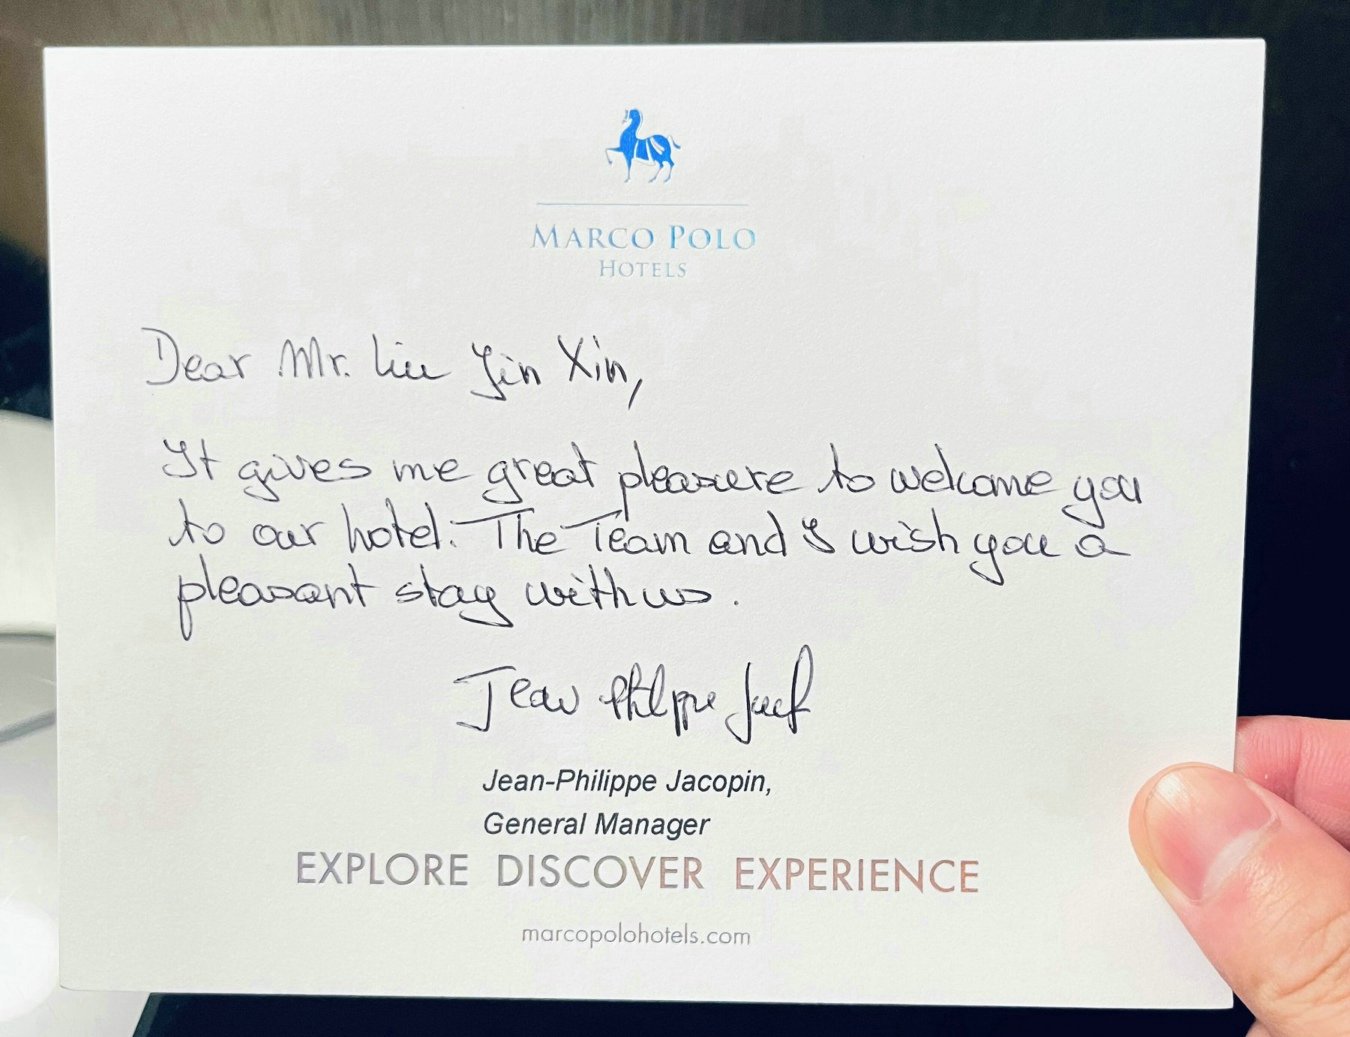 MARCO POLO
HOTELS
Dear Mr. Liu Jin Xin,
It gives me great pleasure to welcome you
to our hotel. The Team and I wish you a
pleasant stay with us.
Jean-Philippe Jacopin,
General Manager
EXPLORE DISCOVER EXPERIENCE
marcopolohotels.com